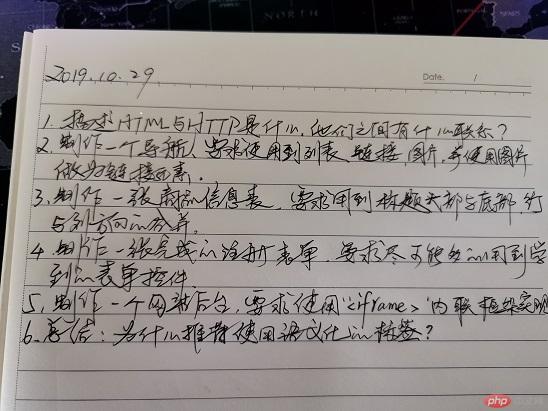 NORTH
2019.10.29
Date. /
1. 描述HTML与HTTP是什么,他们之间有什么联系?
2. 制作一个导航,要求使用到列表,链接,图片,并使用图片
做为链接元素.
3. 制作一张商品信息表,要求用到标题头部与底部,行
与列方向的合并.
4. 制作一张完成的注册表单,要求尽可能多的用到学
到的表单控件
5. 制作一个网站后台,要求使用<iframe>内联框架实现
6. 总结:为什么推荐使用语义化的标签?
php